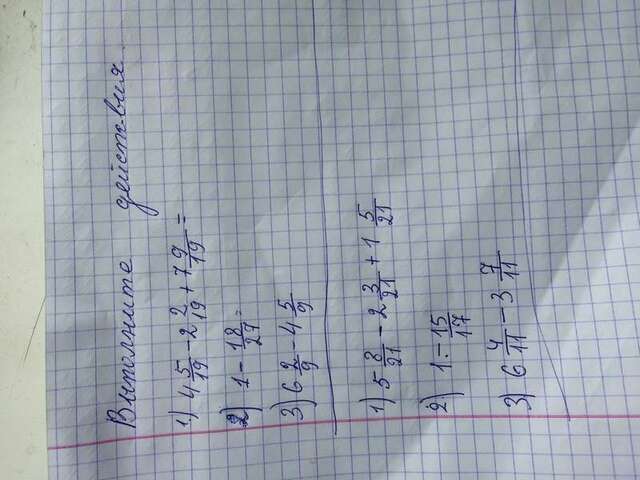 Выполните действия.
1) 4 5/19 - 2 2/19 + 7 9/19 =
2) 1 - 18/27 =
3) 6 2/9 - 4 5/9
1) 5 8/21 - 2 3/21 + 1 5/21
2) 1 - 15/17
3) 6 4/11 - 3 7/11